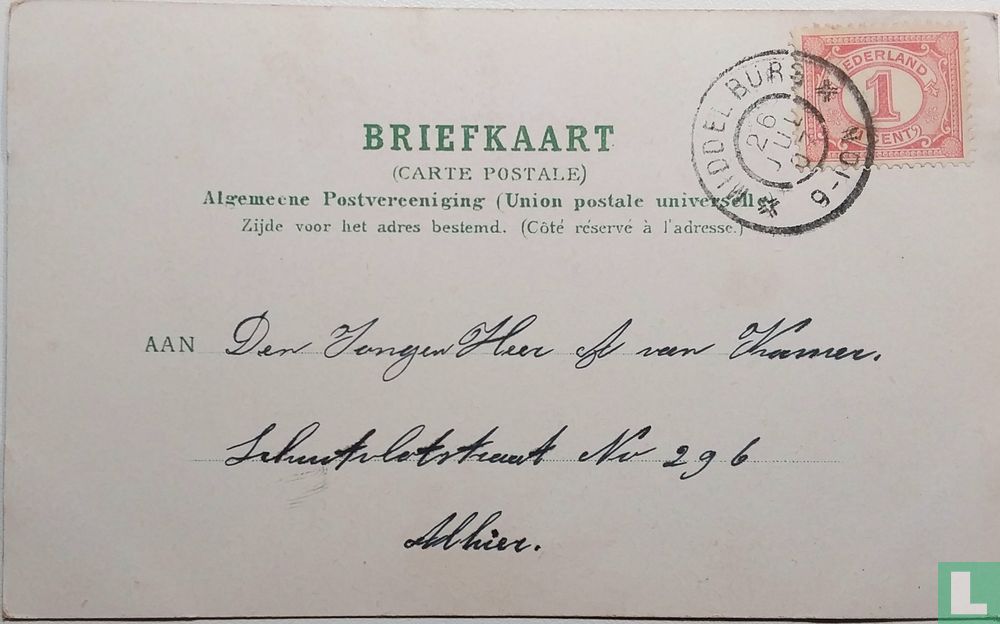 NEDERLAND
1
CENT
MIDDELBURG
26
JUL
9-10V
BRIEFKAART
(CARTE POSTALE)
Algemeene Postvereeniging (Union postale universelle)
Zijde voor het adres bestemd. (Côté réservé à l'adresse.)
AAN Den Jongen Heer A van Kamer.
Schutvlotstraat No 296
Alhier.
L